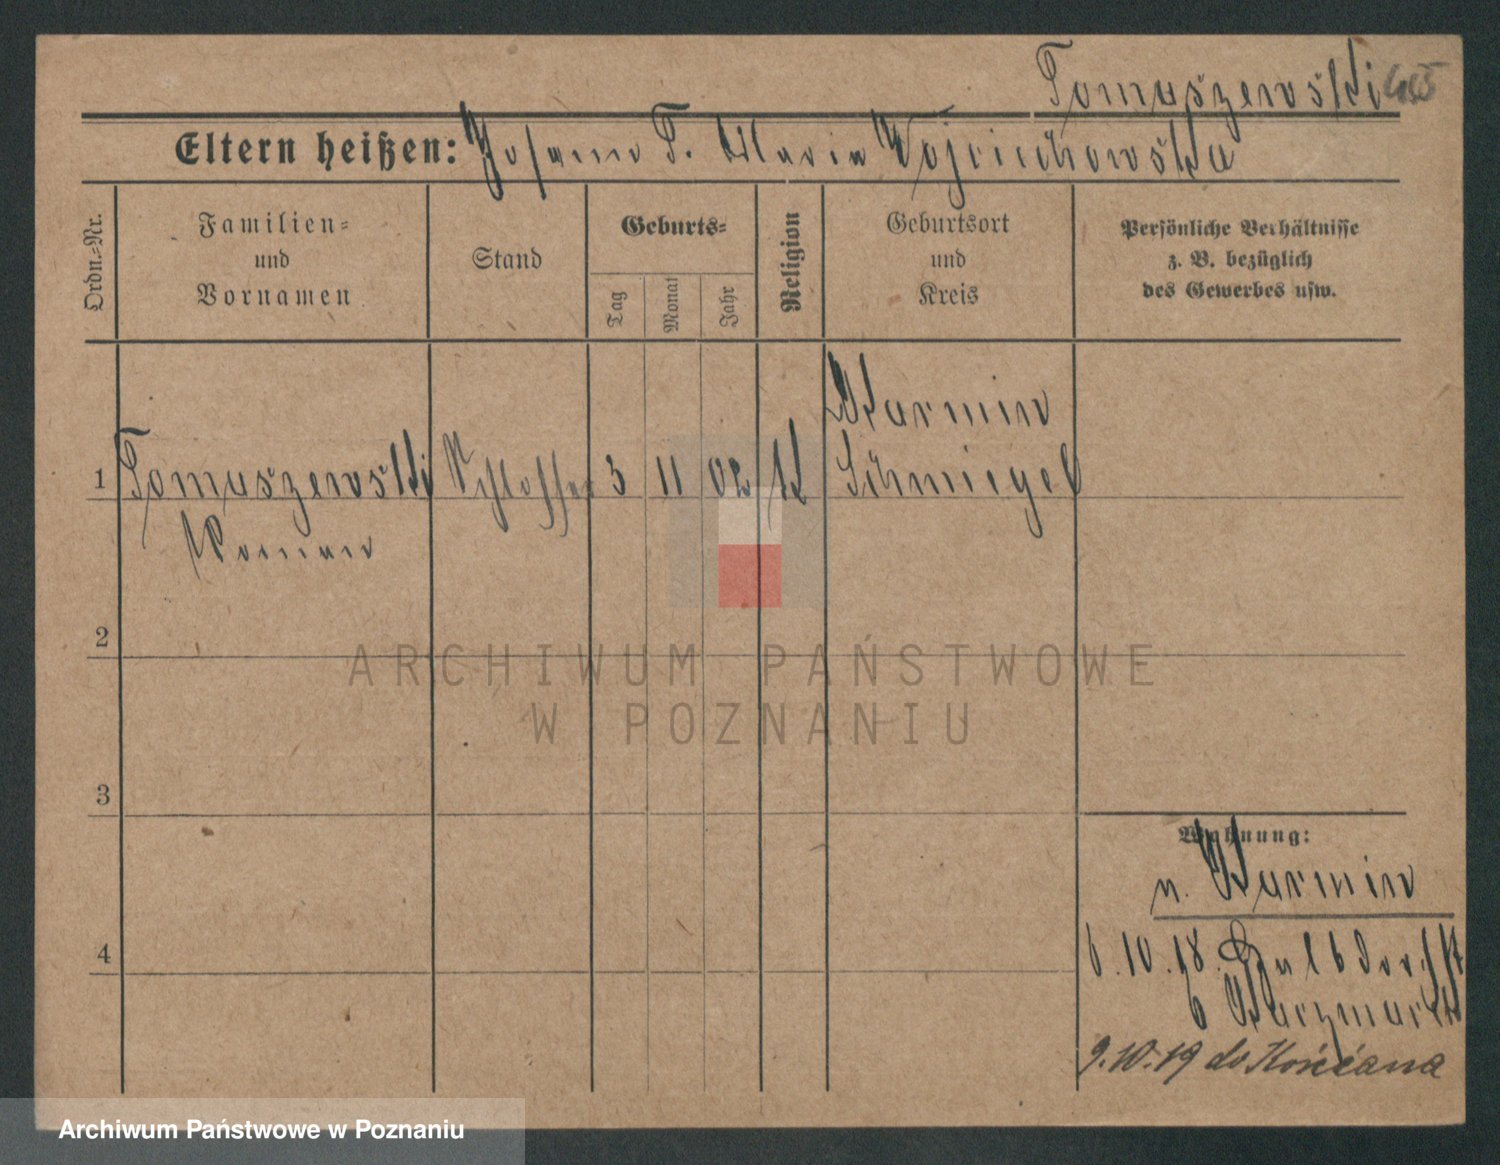 Tomaszewski
Eltern heißen: Johann T. Maria Wojciechowska
Ordn.-Nr.
Familien-
und
Vornamen
Stand
Geburts-
Tag
Monat
Jahr
Religion
Geburtsort
und
Kreis
Persönliche Verhältnisse
z. B. bezüglich
des Gewerbes usw.
Karmin
1 Tomaszewski Schlosser 3 11 02 K Schmiegel
Roman
2
3
4
Wohnung:
n. Karmin
6.10.18. Halbdorfst
6 Kaczmarek
9.10.19 do Kościana
ARCHIWUM PAŃSTWOWE
W POZNANIU
Archiwum Państwowe w Poznaniu